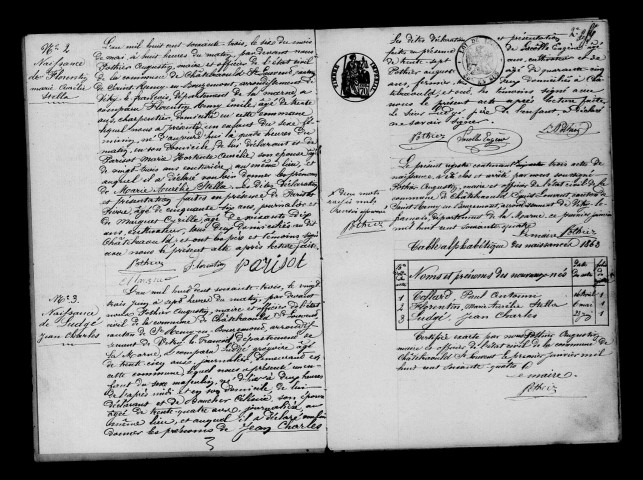 N° 2
Naissance
de Florentin
marie aurélie
Stella
L'an mil huit cent soixante-trois, le six du mois
de mai, à huit heures du matin, par devant nous
Pothier Augustin, maire et officier de l'état civil
de la commune de Châtelraould St Louvent, canton
de Saint Remy en Bouzemont, arrondissement de
Vitry le françois, département de la marne, a
comparu Florentin Remy Emile, âgé de trente
ans, charpentier domicilié en cette commune
lequel nous a présenté un enfant du sexe fé-
minin, né d'aujourd'hui à quatre heures du
matin, en son domicile, de lui déclarant et de
Parisot Marie Hortense Aurélie, son épouse âgée
de vingt trois ans couturière, au même lieu, et
auquel il a déclaré vouloir donner les prénoms
de Marie Aurélie Stella. Les dites déclaration
et présentation faites en présence de Parisot
âgé de cinquante ans, journalier, et
de Cyrille, âgé de soixante dix
ans, cultivateur, tous deux domiciliés au dit
Châtelraould, et ont le père et témoins signé
avec nous le présent acte après lecture faite.
Pothier Florentin Parisot
N° 3
Naissance
de Judgé
Jean Charles
L'an mil huit cent soixante-trois, le vingt
trois juin, à sept heures du matin, par devant
nous Pothier Augustin, maire et officier de l'état
civil de la commune de Châtelraould St Louvent,
canton de St Remy en Bouzemont, arrondisse-
ment de Vitry le Francois, département de
la Marne, a comparu Judgé grégoire âgé
de trente cinq ans, journalier, demeurant en
cette commune, lequel nous a présenté un en-
fant du sexe masculin, né d'hier à deux heures
de l'après midi en son domicile de lui
déclarant et de Boucher Célinie, son épouse
âgée de trente-quatre ans, journalière au
même lieu, et auquel il a déclaré vouloir
donner les prénoms de Jean Charles
3
Les dites déclaration et présentation
faites en présence de Eugène âgé
de trente sept ans, cultivateur et de
Pothier auguste âgé de quarante
ans, tous deux domiciliés à Châ-
telraould et ont, les témoins signé avec
nous le présent acte après lecture faite,
le sieur Judgé, père de l'enfant, a déclaré
ne savoir signer.
Pothier Eugène A. Pothier
Le présent registre contenant trois actes de
naissance a été clos et arrêté par nous soussigné
Pothier Augustin, maire et officier de l'état civil de la
commune de Châtelraould Saint Louvent, canton de
Saint Remy en Bouzemont, arrondissement de Vitry-le-
françois, département de la Marne, ce premier janvier
mil huit cent soixante quatre.
Le maire Pothier
Deux mots
rayés nuls
Pothier
Table alphabétique des naissances 1863
Noms et prénoms des nouveaux-nés
1 Collard, Paul Antonin 1
2 Florentin, Marie Aurélie Stella 6 mai 2
3 Judgé Jean Charles 3
Certifiée exacte par nous Pothier Augustin,
maire et officier de l'état civil de la commune de
Châtelraould St Louvent le premier janvier mil
huit cent soixante quatre
Le maire
Pothier